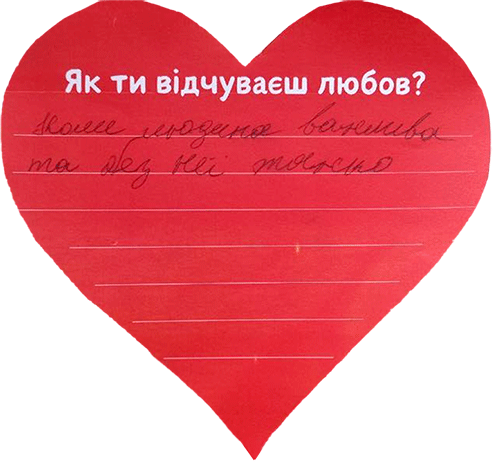 Як ти відчуваєш любов?
Коли людина важлива
та без неї тяжко